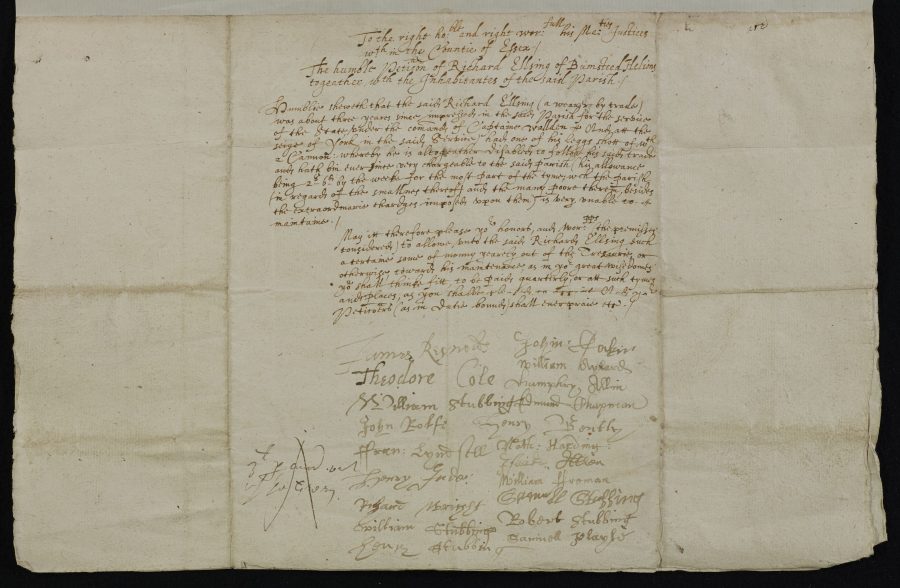 To the right hoble and right worfull his Maties Justices
wthin the Countie of Essex /
The humble Peticon of Richard Ellsing of Bumsted Helions
togeather wth the Inhabitantes of the said Parish
Humblie sheweth that the said Richard Ellsing (a weaver by trade)
was about three yeares since impressed in the said Parish for the service
of the State under the comand of Captaine Wallden & And att the
seige of York in the said Service had one of his leggs shot of wth
a Cannon: whereby he is altogeather disabled to follow his said trade
and hath bin ever since very chargeable to the said Parish his allowance
being 2s 6d by the weeke for the most part of the tyme, wch the Parish
(in regard of the smallnes thereof and the many poore therein, besides
the extraordinarie chardges imposed upon them) is very unable to
maintaine. /
May itt therefore please yor honors, and worpps the premisses
considered) to allowe unto the said Richard Ellsing such
a certaine some of monny yearely out of the Treasurie, or
otherwise towards his maintenance as in yor great wisedomes
you shall thinke fitt, to be paid quarterly, or att such tymes
and places, as you shall
Peticoners (as in dutie bound) shall ever praie etc. /
James John:
William
Theodore Cole Humphry Allin
William Stubbing Edmund Chapman
John Rolfe Henry
Fran: Math: Harding
Henry
William Froman
Richard Wright
Robert Stubbing
William Stubbing Samuell Playle
Henry Stubbing